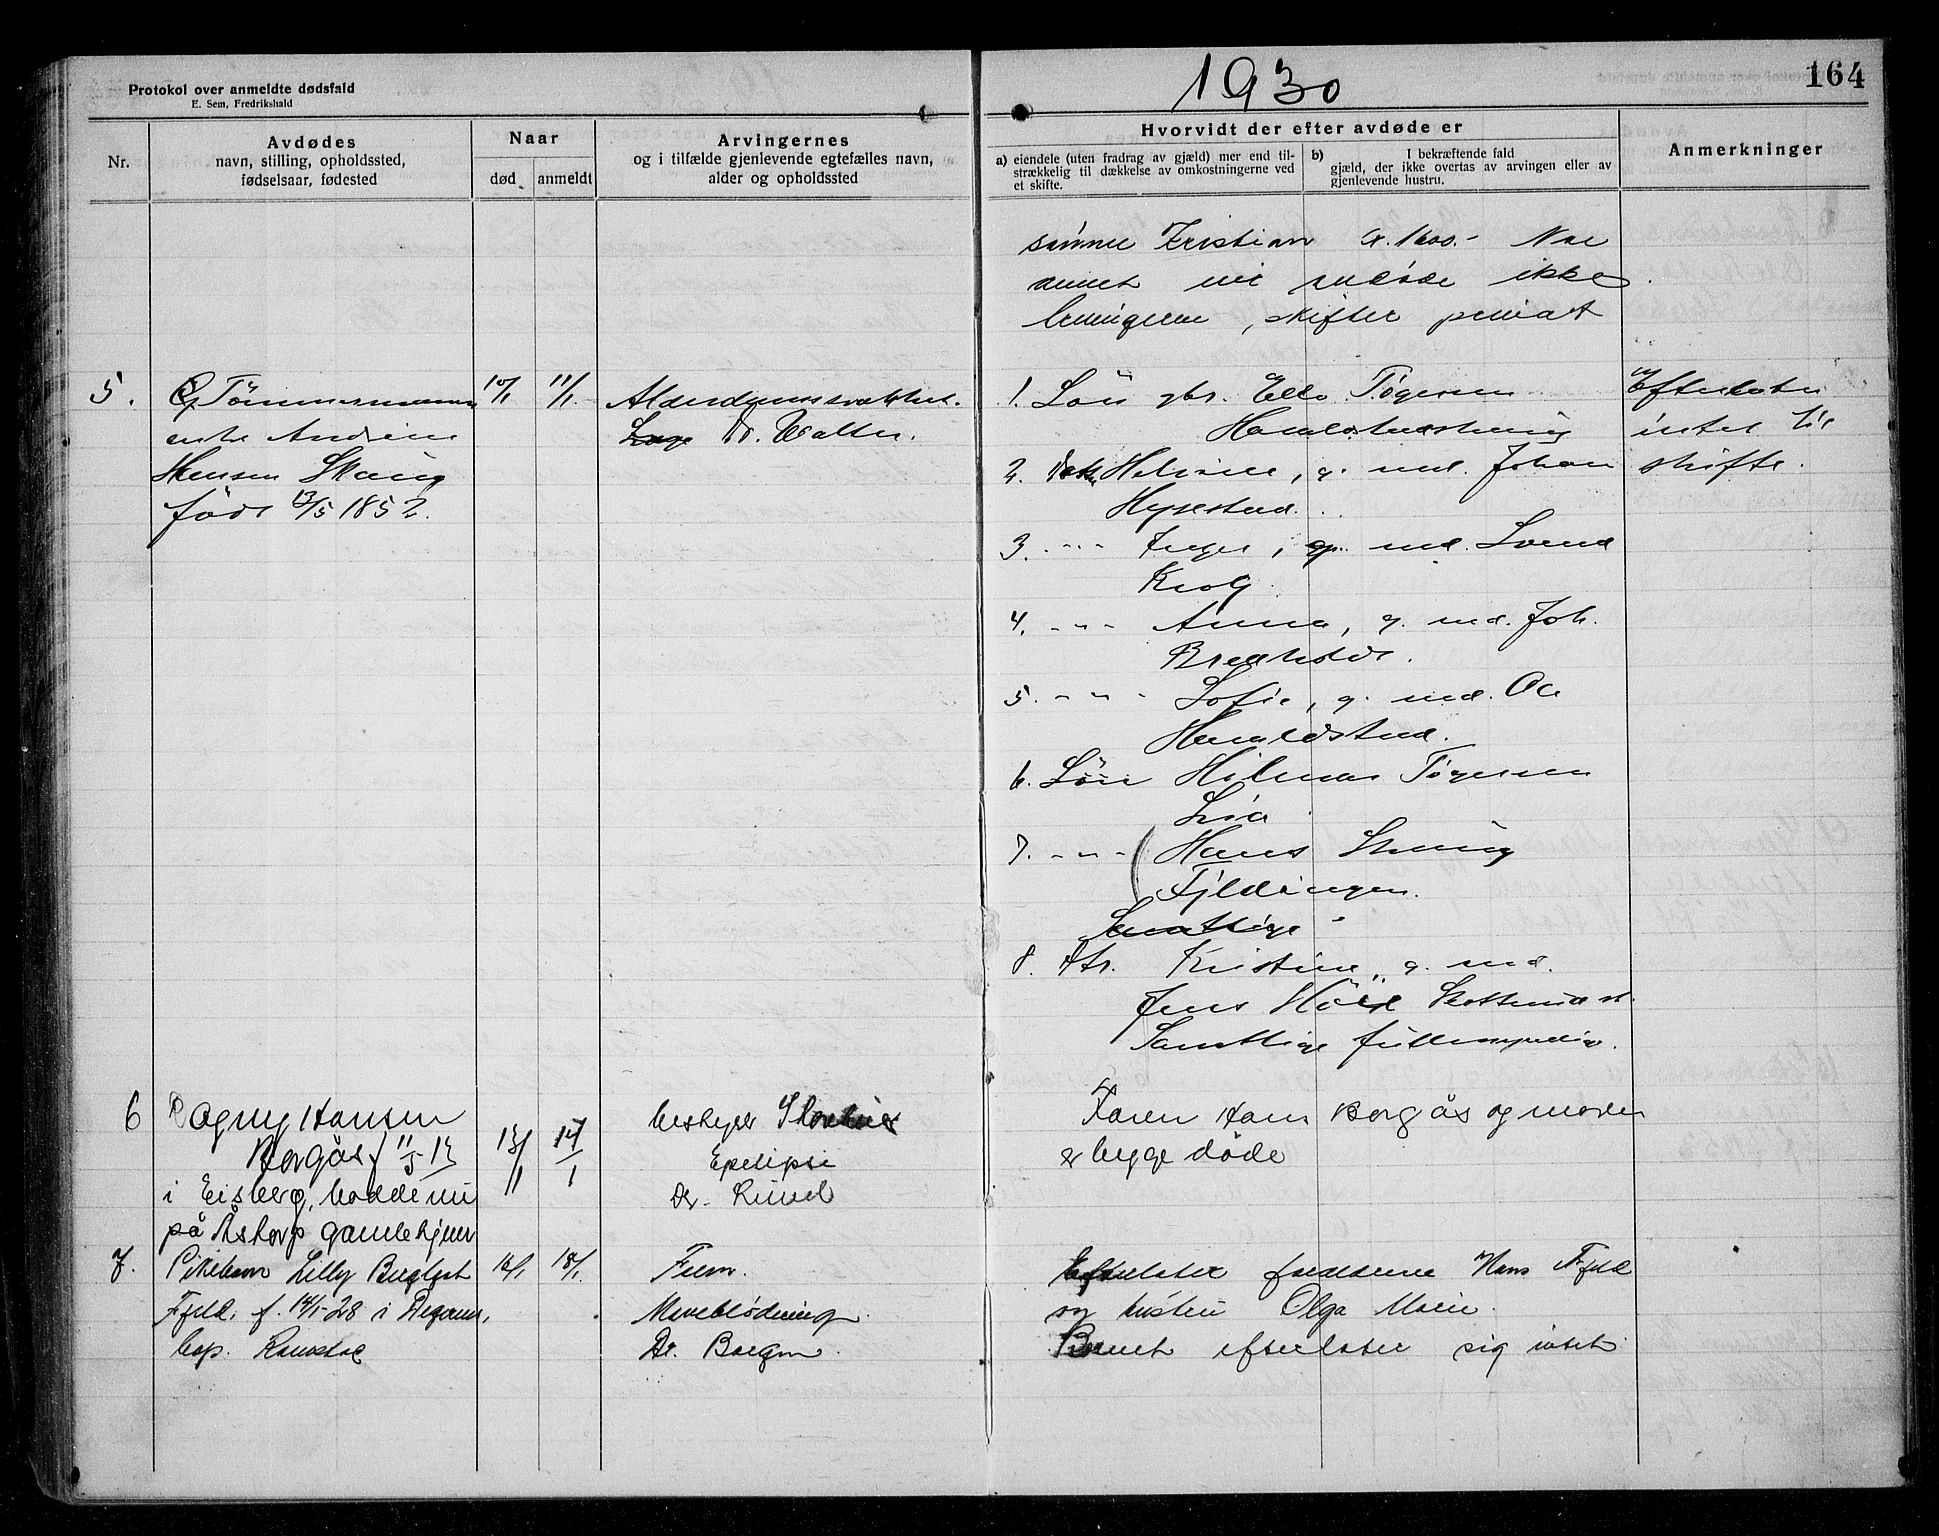 Protokol over anmeldte dødsfald
E. Sem, Fredrikshald
1930
164
Nr.
Avdødes
navn, stilling, opholdssted,
fødselsaar, fødested
Naar
død
anmeldt
Arvingernes
og i tilfælde gjenlevende egtefælles navn,
alder og opholdssted
Hvorvidt der efter avdøde er
a) eiendele (uten fradrag av gjæld) mer end til-
strækkelig til dækkelse av omkostningerne ved
et skifte.
b) I bekræftende fald
gjæld, der ikke overtas av arvingen eller av
gjenlevende hustru.
Anmerkninger
Kristian 1600.-
avdøde ikke
skifter privat
5.
Tömmermann
enke Andrine
Hansen Skaug
født 13/5 1852.
10/1
11/1
Alderdomssvakhet.
Dr. Walter.
1. Sön gbr. Tøgersen
2. Helvine, g. med. Johan
3. -"- Inger, g. med. Svend
Krog
4. -"- Anna, g. med. Joh.
5. -"- Sofie, g. med. Ole
Haraldstad.
6. Sön Hilmar Tøgersen
7. -"- Hans Skaug
Fjeldingen.
Samtlige
8. Dtr. Kristine, g. med.
Jens
Samtlige fuldmyndig.
Efterlater
intet til
skifte.
6
Dagny Hansen
Borgås f 11/5 13
i Eisberg, bodde nu
på Åstorp gamlehjem
13/1
14/1
bestyrer
Epelipsi
Dr.
Faren Hans Borgås og moren
er begge døde
7.
Pikebarn Lilly
Fjeld, f. 14/5-28 i Degernes,
bop. Ramstad
16/1
18/1
Faren.
Maveblødning
Dr. Borgen
Efterlater forældrene Hans Fjeld
og hustru Olga Marie.
Barnet efterlater sig intet